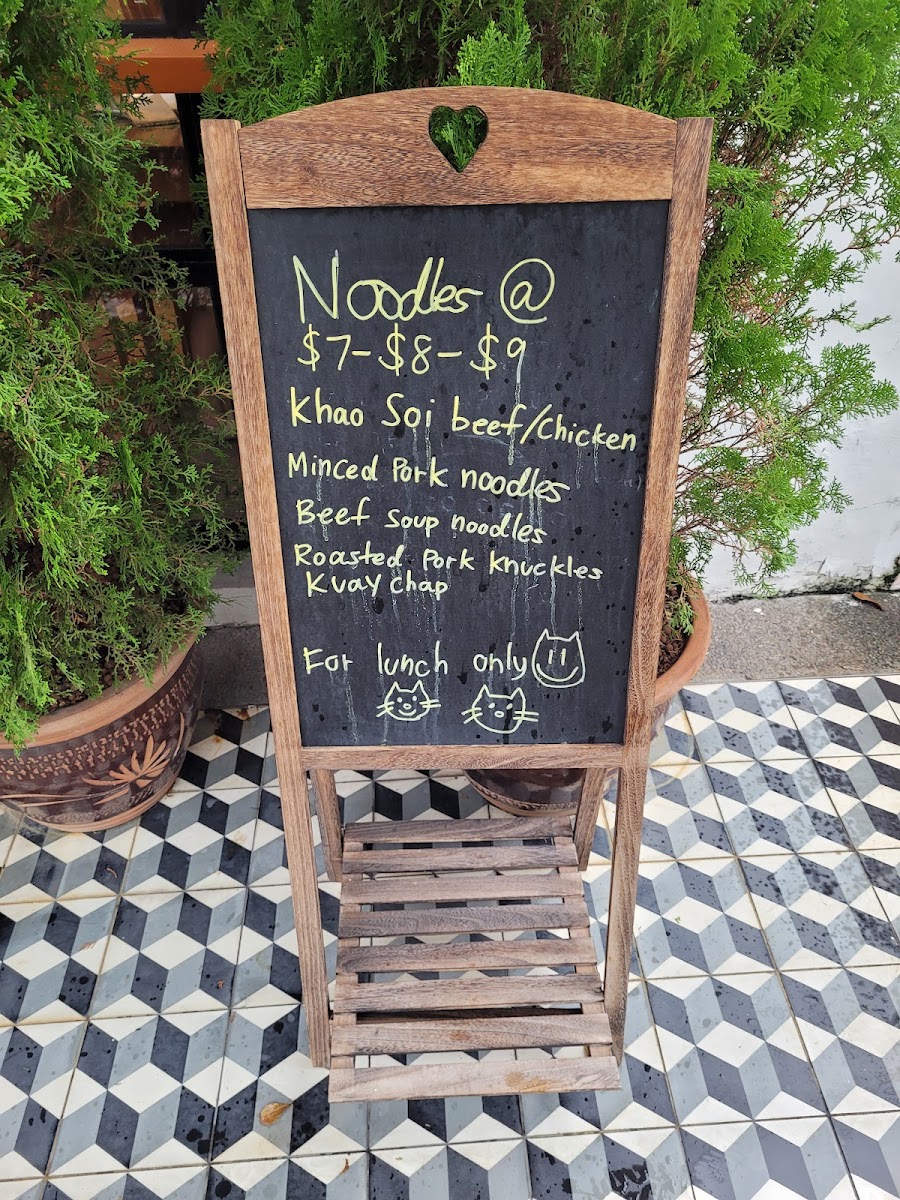 Noodles @
$7-$8-$9
Khao Soi beef/Chicken
Minced Pork noodles
Beef soup noodles
Roasted Pork Knuckles
Kuay chap
For lunch only